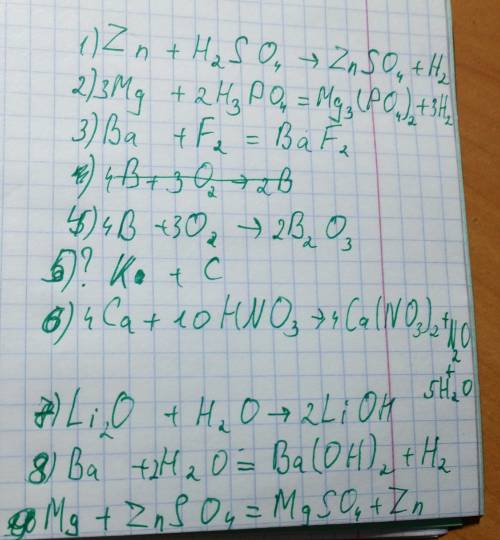 1) Zn + H₂SO₄ → ZnSO₄ + H₂
2) 3Mg + 2H₃PO₄ = Mg₃(PO₄)₂ + 3H₂
3) Ba + F₂ = BaF₂
4) 4B + 3O₂ → 2B
4) 4B + 3O₂ → 2B₂O₃
5) ? K + C
6) 4Ca + 10HNO₃ → 4Ca(NO₃)₂ + N₂O + 5H₂O
7) Li₂O + H₂O → 2LiOH
8) Ba + 2H₂O = Ba(OH)₂ + H₂
9) Mg + ZnSO₄ = MgSO₄ + Zn